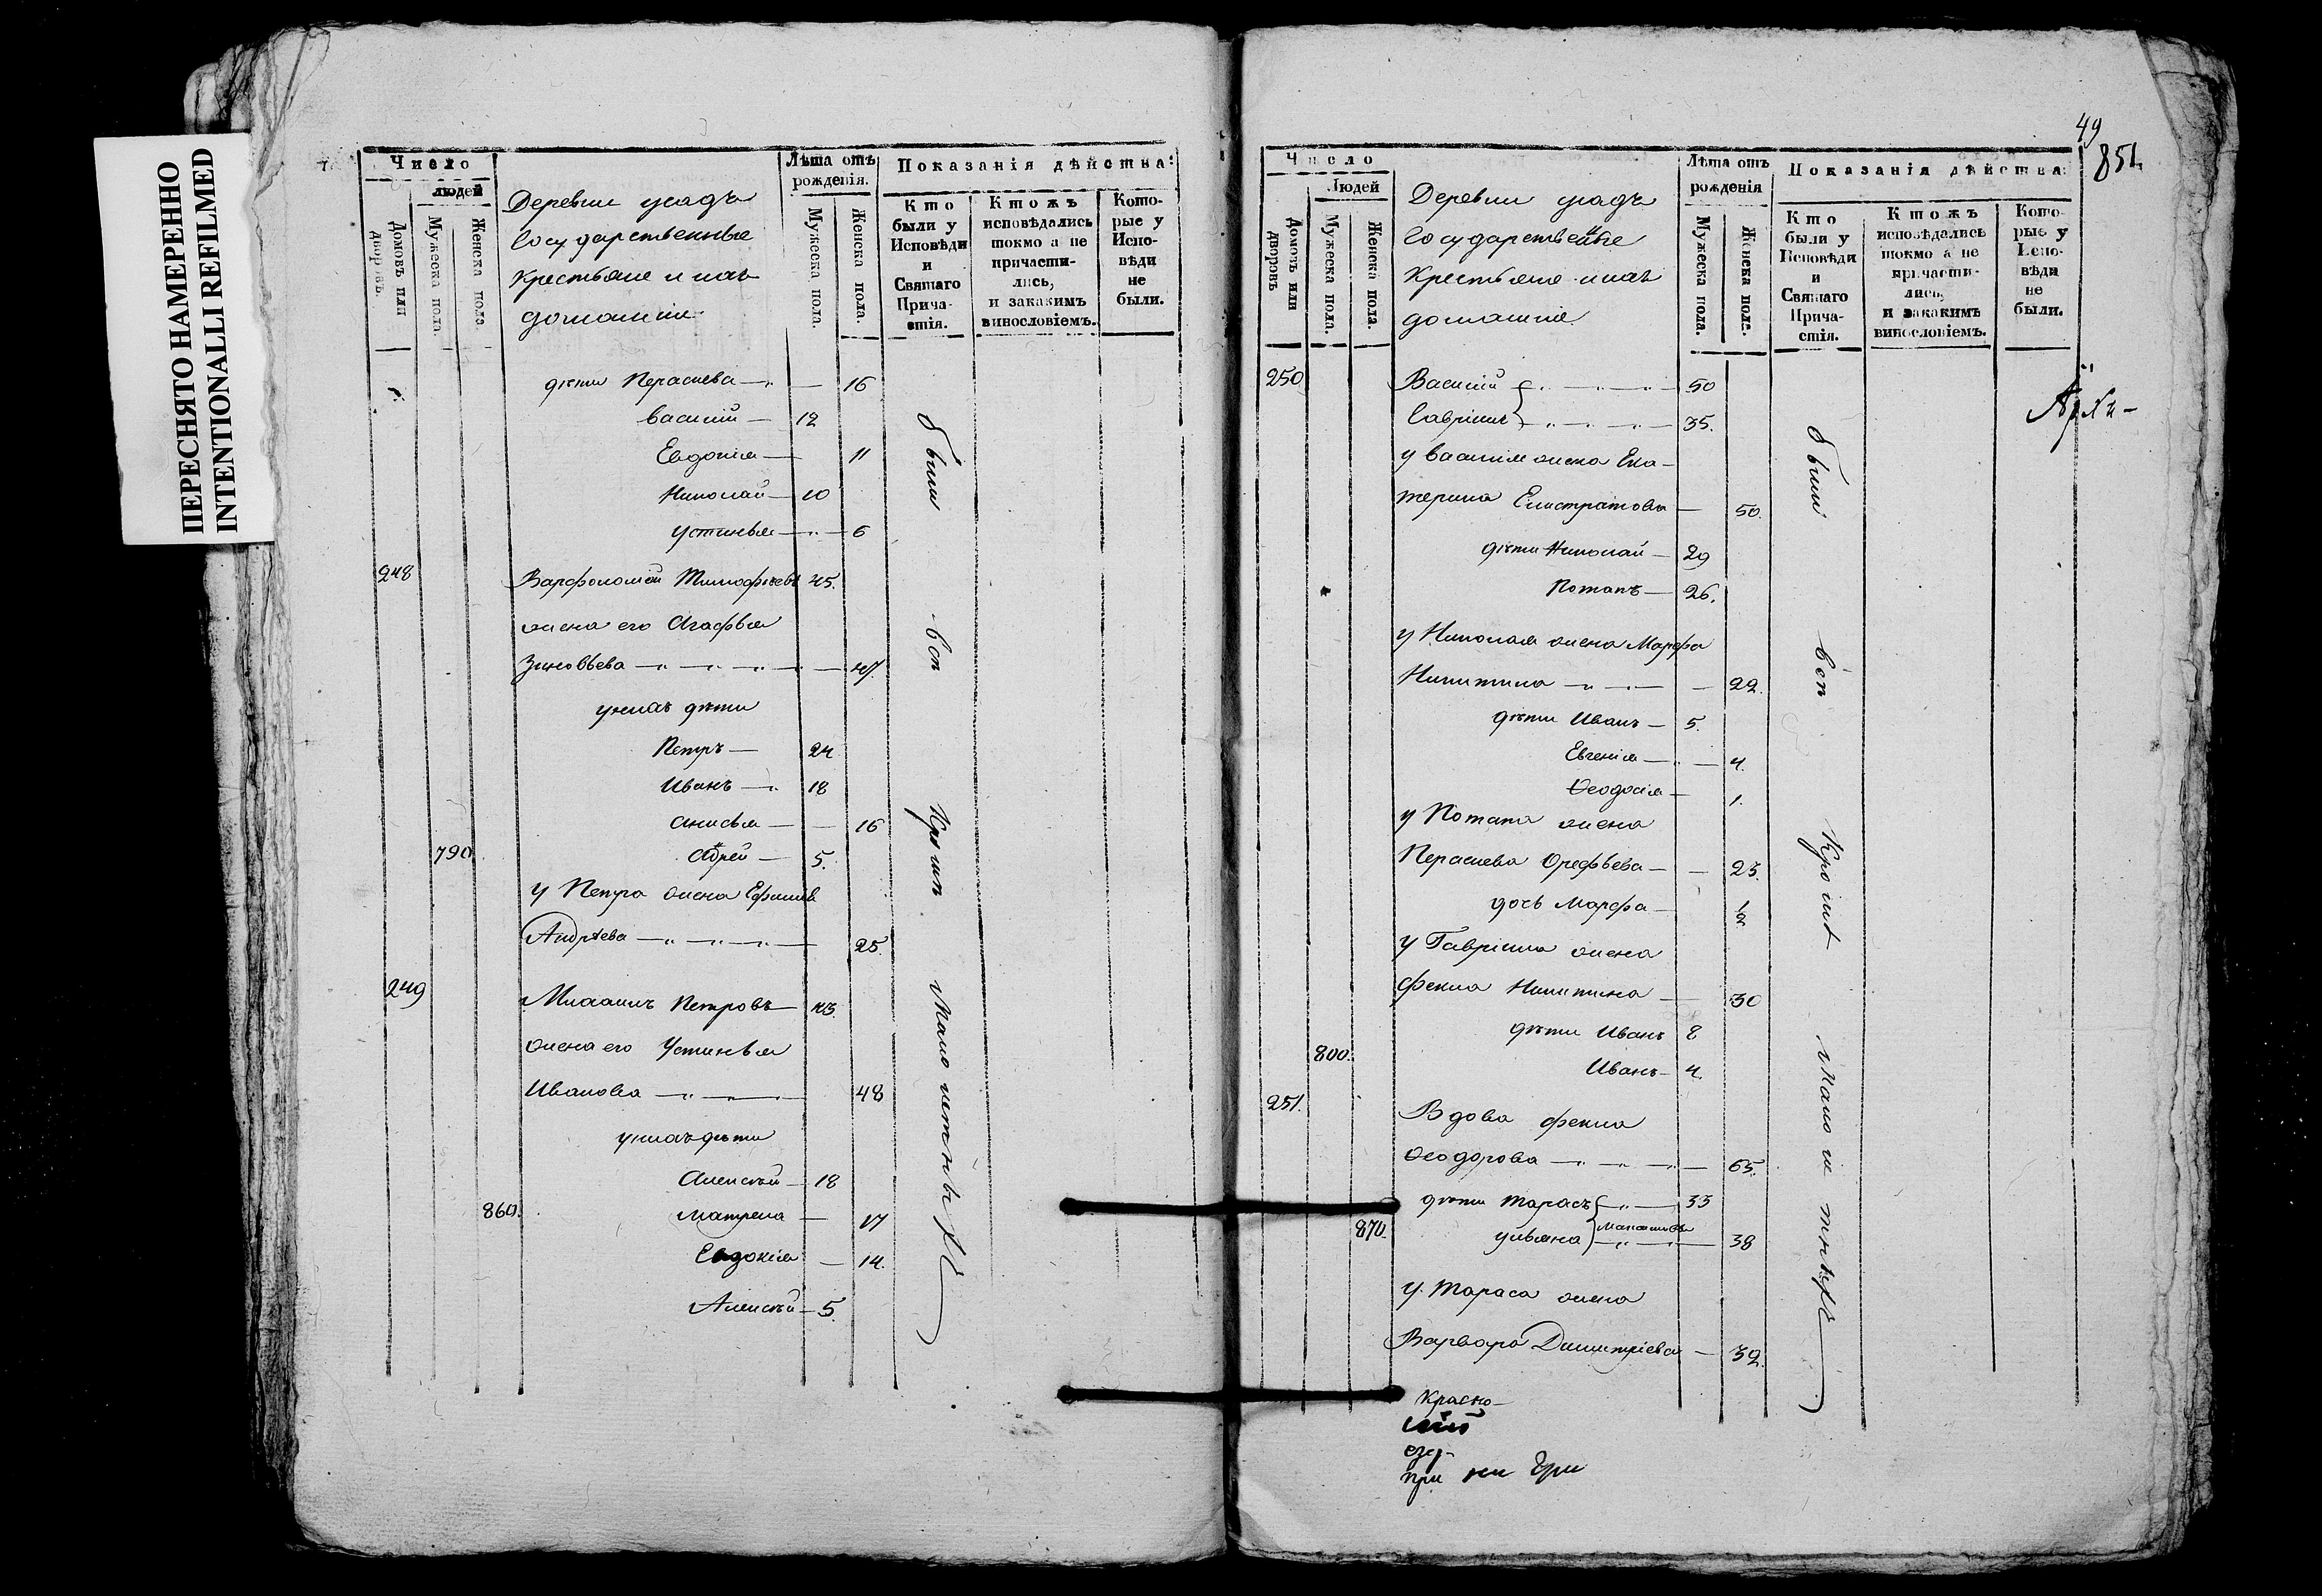 ПЕРЕСНЯТО НАМЕРЕННО
INTENTIONALLI REFILMED
Число
людей
Домовъ или дворовъ.
Мужеска пола.
Женска пола.
Деревни
Государственные
крестьяне и ихъ
домашніе
Лѣта отъ
рожденія.
Мужеска пола.
Женска пола.
Показанія дѣйства:
Кто
были у
Исповѣди
и
Святаго
Прича-
стія.
Ктожъ
исповѣдались
токмо а не
причасти-
лись,
и закакимъ
винословіемъ.
Кото-
рые у
Испо-
вѣди
не
были.
дѣти Параскева — 16
Василий — 12
Евдокія — 11
Николай — 10
Устинья — 6
248 Варфоломей Тимофѣевъ 45.
жена его Агафья
Зиновьева — 47.
у нихъ дѣти
Петръ — 24
Иванъ — 18
Анисья — 16
790 — 5.
у Петра жена Ефимія
Андрѣева — 25.
249 Петровъ — 43.
жена его Устинья
Иванова — 48
у нихъ дѣти
Алексѣй — 18
860. Матрена — 17
Евдокія — 14.
Алексѣй — 5.
были всѣ кромѣ малолетныхъ
49
851.
Число
Людей
Домовъ или дворовъ
Мужеска пола.
Женска пола.
Деревни
Государственные
Крестьяне и ихъ
домашніе.
Лѣта отъ
рожденія
Мужеска пола.
Женска пола.
Показанія дѣйства:
Кто
были у
Исповѣди
и
Святаго
Прича-
стія.
Ктожъ
исповѣдались
токмо а не
причасти-
лись,
и закакимъ
винословіемъ.
Кото-
рые у
Испо-
вѣди
не
были.
250 Василій — 50
Гавріилъ — 35.
у Василія жена Ека-
терина Елистратова — 50.
дѣти Николай — 29
Потапъ — 26.
у Николая жена Марфа
Никитина — 22.
дѣти Иванъ — 5.
Евгенія — 4.
Ѳеодосія — 1.
у Потапа жена
Параскева Орефьева — 23.
дочь Марфа — 1/2
у Гавріила жена
Фекла Никитина — 30
дѣти Иванъ 8
800. Иванъ — 4.
251. Вдова Фекла
Ѳеодорова — 65.
дѣти Тарасъ — 33
870. Ульяна Максимовы — 38
у Тараса жена
Варвара Димитріева — 32.
были всѣ кромѣ малолѣтнѣхъ
Красно-
при